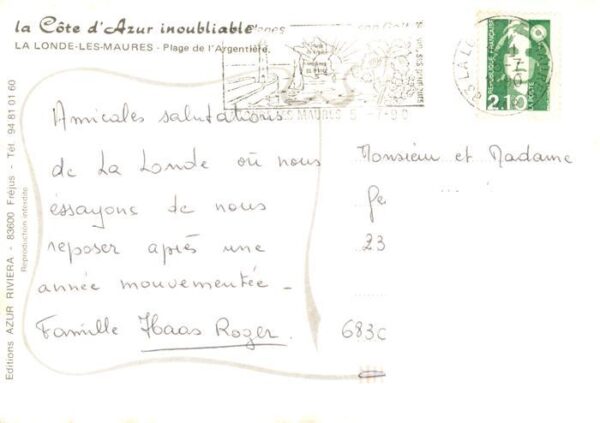 la Côte d'Azur inoubliable
LA LONDE-LES-MAURES - Plage de l'Argentière
Editions AZUR RIVIERA - 83600 Fréjus - Tél. 94 81 01 60
Reproduction interdite
RÉPUBLIQUE FRANÇAISE
2,10
MAURES 5-7-90
Amicales salutations
de La Londe où nous
essayons de nous
reposer après une
année mouvementée -
Famille Haas Roger.
Monsieur et Madame
Ge
23
683